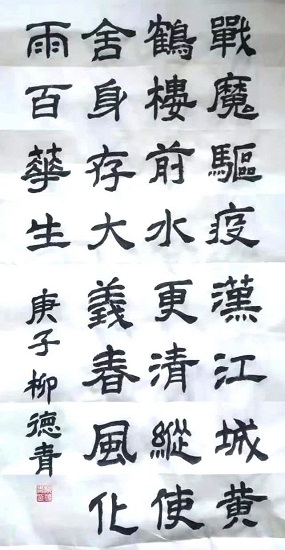 戰魔驅疫漢江城黄
鶴樓前水更清縱使
舍身存大義春風化
雨百華生
庚子柳德青